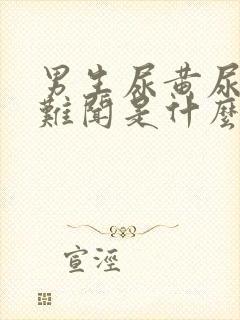 男生尿黄尿
難聞是什麼
宣淫